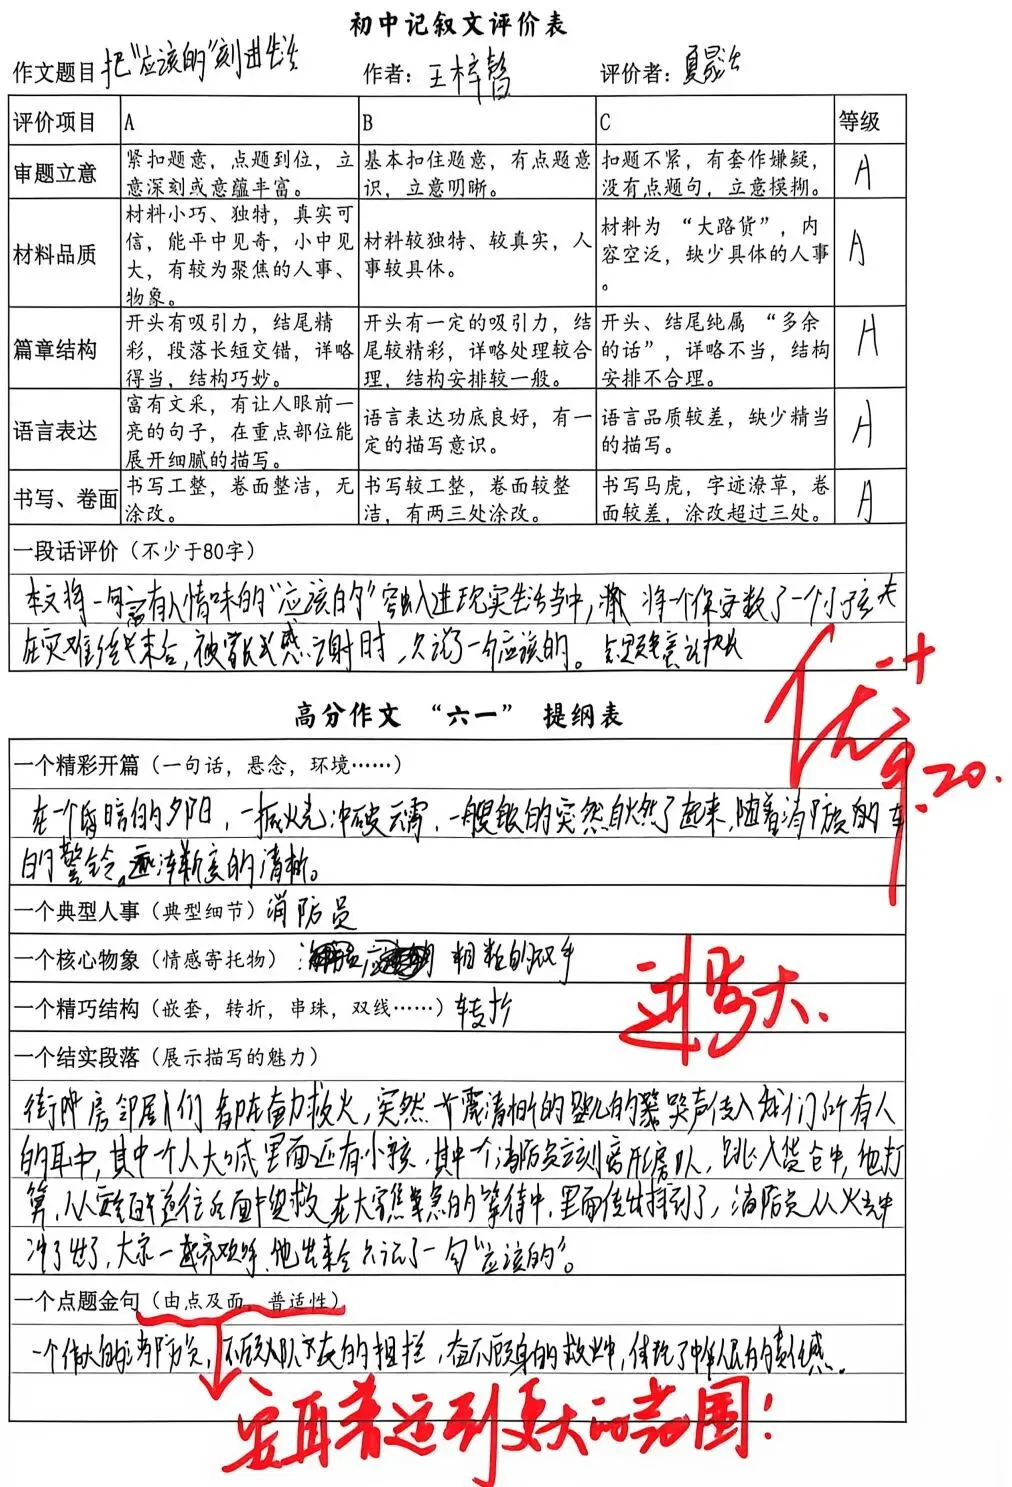 初中记叙文评价表
作文题目 把“应该的”刻进生活 作者：王梓暂 评价者：夏
评价项目 A B C 等级
审题立意 紧扣题意，点题到位，立意深刻或意蕴丰富。 基本扣住题意，有点题意识，立意明晰。 扣题不紧，有套作嫌疑，没有点题句，立意模糊。 A
材料品质 材料小巧、独特，真实可信，能平中见奇，小中见大，有较为聚焦的人事、物象。 材料较独特、较真实，人事较具体。 材料为“大路货”，内容空泛，缺少具体的人事。 A
篇章结构 开头有吸引力，结尾精彩，段落长短交错，详略得当，结构巧妙。 开头有一定的吸引力，结尾较精彩，详略处理较合理，结构安排较一般。 开头、结尾纯属“多余的话”，详略不当，结构安排不合理。 A
语言表达 富有文采，有让人眼前一亮的句子，在重点部位能展开细腻的描写。 语言表达功底良好，有一定的描写意识。 语言品质较差，缺少精当的描写。 A
书写、卷面 书写工整，卷面整洁，无涂改。 书写较工整，卷面较整洁，有两三处涂改。 书写马虎，字迹潦草，卷面较差，涂改超过三处。 A
一段话评价（不少于80字）
本文将一句富有人情味的“应该的”融入进现实生活当中， 将一个保安救了一个小孩
在灾难结束后，被家长感谢时，只说了一句应该的。
优++
9.20.
高分作文 “六一” 提纲表
一个精彩开篇（一句话，悬念，环境……）
在一个昏暗的夕阳，一振火光冲破云霄，一艘 的突然自燃了起来，随着消防员的车
的警铃 逐渐 的清晰。
一个典型人事（典型细节）消防员
一个核心物象（情感寄托物）： 粗糙的双手
一个精巧结构（嵌套，转折，串珠，双线……）转折
进步大.
一个结实段落（展示描写的魅力）
街坊邻居们都在奋力救火，突然一个 清晰的婴儿的 哭声传入我们所有人
的耳中，其中一个人大喊里面还有小孩，其中一个消防员立刻离开房队，跳入货仓中，他打
算，从 道往后面 救，在大家焦急的等待中，里面传出 到了，消防员从火光中
冲了出了，大家一起齐欢呼，他出来后只说了一句“应该的”。
一个点题金句（由点及面，普适性）
一个伟大的消防员，不顾 的阻拦，奋不顾身的救 中，体现了中华人民的责任感。
要再普适到更大的范围！